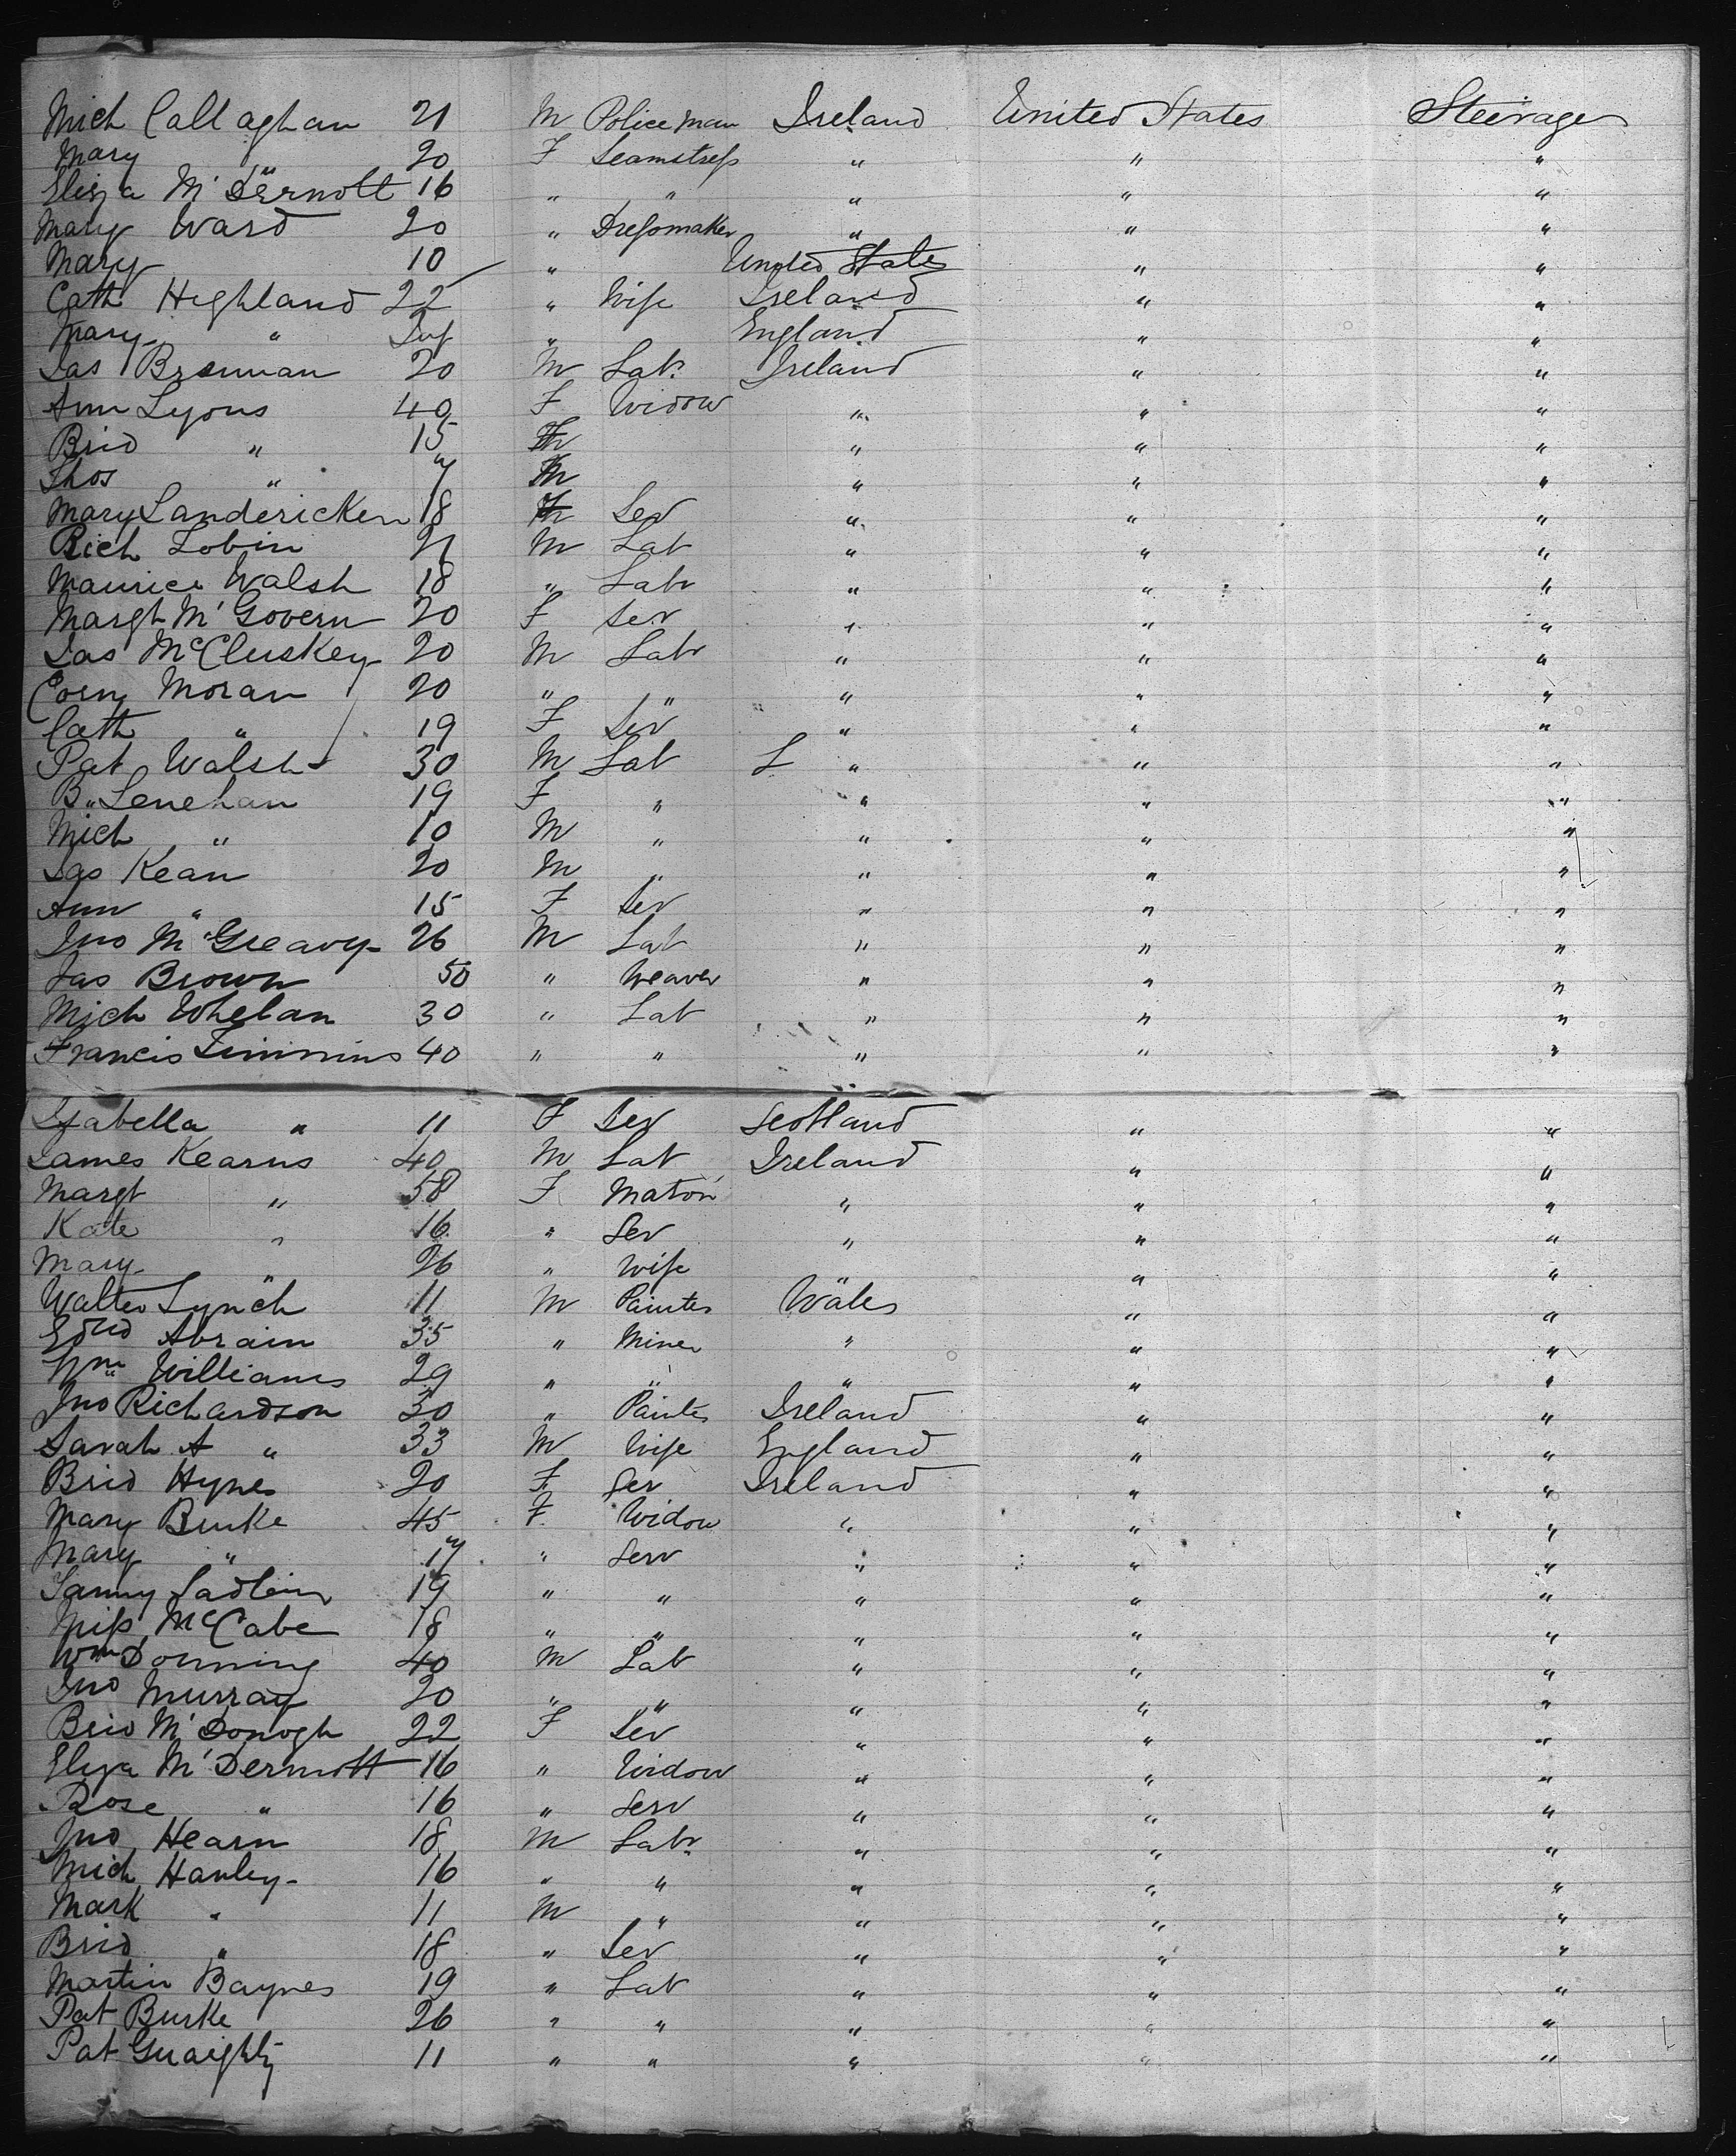 Mich Callaghan 21 M Police man Ireland United States Steerage
Mary " 20 F Seamstress " " "
Eliza McDermott 16 " " " " "
Mary Ward 20 " Dressmaker " " "
Mary 10 " United States " "
Cath Highland 22 " Wife Ireland " "
Mary " Inf " England " "
Jas Brennan 20 M Lab. Ireland " "
Ann Lyons 40 F Widow " " "
Brid " 15 F " " "
Thos " 7 M " " "
Mary Landericken 18 F Ser " " "
Rich Tobin 21 M Lab " " "
Maurice Walsh 18 " Labr " " "
Margt McGovern 20 F Ser " " "
Jas McCluskey 20 M Labr " " "
Corny Moran 20 " " " " "
Cath " 19 F Ser " " "
Pat Walsh 30 M Lab " " "
B. Lenehan 19 F " " " "
Mich " 10 M " " " "
Jas Kean 20 M " " " "
Ann " 15 F Ser " " "
Jno McGreavy 26 M Lab " " "
Jas Brown 50 " Weaver " " "
Mich Whelan 30 " Lab " " "
Francis Timmins 40 " " " " "
Isabella " 11 F Ser Scotland " "
James Kearns 40 M Lab Ireland " "
Margt " 58 F Maton " " "
Kate " 16 " Ser " " "
Mary " 26 " Wife " " "
Walter Lynch 11 M Painter Wales " "
Edwd Abrain 35 " Miner " " "
Wm Williams 29 " " " " "
Jno Richardson 30 " Painter Ireland " "
Sarah A " 33 M Wife England " "
Brid Hynes 20 F Ser Ireland " "
Mary Burke 45 F Widow " " "
Mary " 17 " Serv " " "
19 " " " " "
Miss McCabe 18 " " " " "
Wm Donning 40 M Lab " " "
Jno Murray 20 " " " " "
Brid McDonogh 22 F Ser " " "
Eliza McDermott 16 " Widow " " "
Rose " 16 " Serv " " "
Jno Hearn 18 M Labr " " "
Mich Hanley 16 " " " " "
Mark " 11 M " " " "
Brid " 18 " Ser " " "
Martin Baynes 19 " Lab " " "
Pat Burke 26 " " " " "
Pat 11 " " " " "